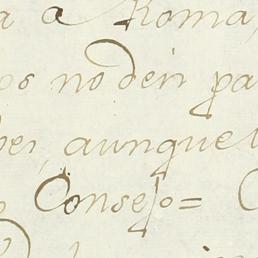 a a Roma,
os no den pa
bes, aunque
Consejo=